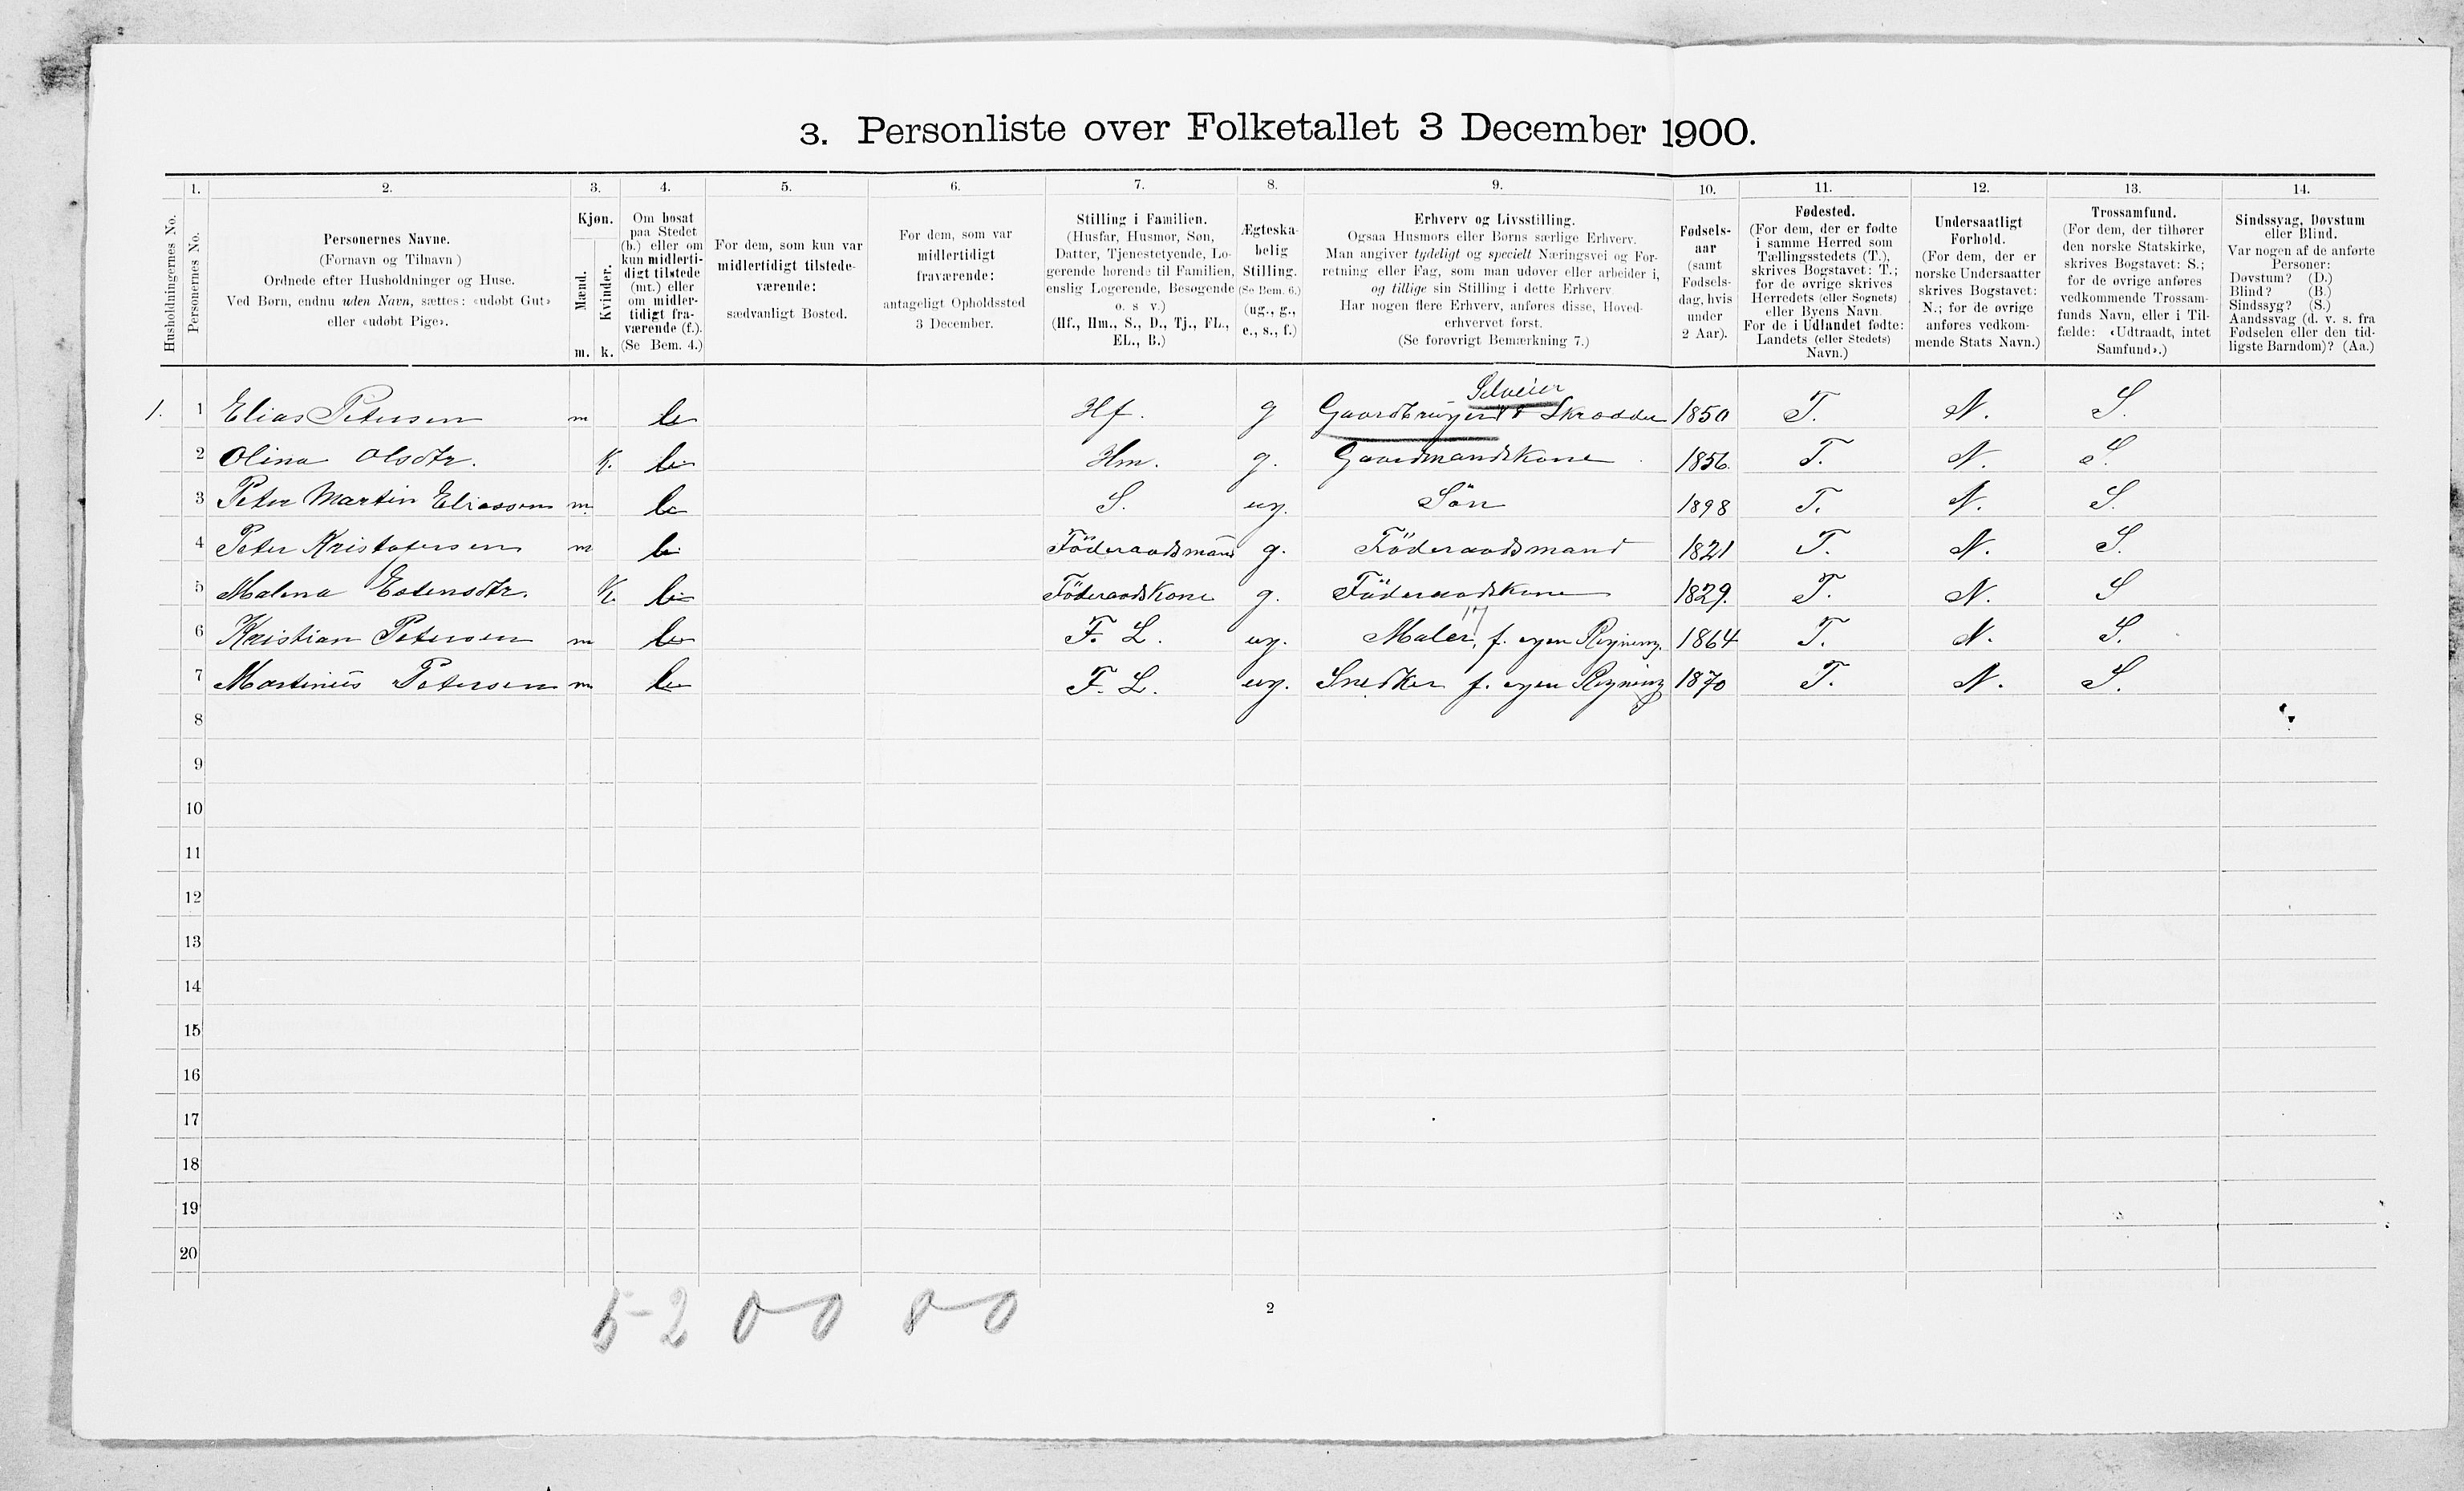 3. Personliste over Folketallet 3 December 1900.
Husholdningernes No.
1.
Personernes No.
2.
Personernes Navne.
(Fornavn og Tilnavn)
Ordnede efter Husholdninger og Huse.
Ved Børn, endnu uden Navn, sættes: «udøbt Gut»
eller «udøbt Pige».
3.
Kjøn.
Mænd.
m.
Kvinder.
k.
4.
Om bosat
paa Stedet
(b.) eller om
kun midlerti-
digt tilstede
(mt.) eller
om midler-
tidigt fra-
værende (f.).
(Se Bem. 4.)
5.
For dem, som kun var
midlertidigt tilstede-
værende:
sædvanligt Bosted.
6.
For dem, som var
midlertidigt
fraværende:
antageligt Opholdssted
3 December.
7.
Stilling i Familien.
(Husfar, Husmor, Søn,
Datter, Tjenestetyende, Lo-
gerende hørende til Familien,
enslig Logerende, Besøgende
o. s v.)
(Hf., Hm., S., D., Tj., FL.,
EL., B.)
8.
Ægteska-
belig
Stilling.
(Se Bem. 6.)
(ug., g.,
e., s., f.)
9.
Erhverv og Livsstilling.
Ogsaa Husmors eller Børns særlige Erhverv.
Man angiver tydeligt og specielt Næringsvei og For-
retning eller Fag, som man udøver eller arbeider i,
og tillige sin Stilling i dette Erhverv.
Har nogen flere Erhverv, anføres disse, Hoved-
erhvervet først.
(Se forøvrigt Bemærkning 7.)
10.
Fødsels-
aar
(samt
Fødsels-
dag, hvis
under
2 Aar).
11.
Fødested.
(For dem, der er fødte
i samme Herred som
Tællingsstedets (T.),
skrives Bogstavet: T.;
for de øvrige skrives
Herredets (eller Sognets)
eller Byens Navn.
For de i Udlandet fødte:
Landets (eller Stedets)
Navn.)
12.
Undersaatligt
Forhold.
(For dem, der er
norske Undersaatter
skrives Bogstavet:
N.; for de øvrige
anføres vedkom-
mende Stats Navn.)
13.
Trossamfund.
(For dem, der tilhører
den norske Statskirke,
skrives Bogstavet: S.;
for de øvrige anføres
vedkommende Trossam-
funds Navn, eller i Til-
fælde: «Udtraadt, intet
Samfund».)
14.
Sindssvag, Døvstum
eller Blind.
Var nogen af de anførte
Personer:
Døvstum? (D.)
Blind? (B.)
Sindssyg? (S.)
Aandssvag (d. v. s. fra
Fødselen eller den tid-
ligste Barndom)? (Aa.)
Selveier
1. 1 Elias Petersen m b Hf. g Gaardbruger & Skrædder 1850 T. N. S.
2 Olina Olsdtr. K. b Hm. g. Gaardmandskone 1856. T. N. S.
3 Peter Martin Eliassen m. b S. ug. Sön 1898 T. N. S.
4 Peter Kristofersen m b Föderaadsmand g. Föderaadsmand 1821 T. N. S.
5 Malena Estensdtr. K. b Föderaadskone g. Föderaadskone 1829. T. N. S
17
6 Kristian Petersen m b F. L. ug. Maler, f. egen Regning. 1864 T. N. S.
7 Martinius Petersen m b F. L. ug. Snedker f. egen Regning 1870 T. N. S.
8
9
10
11
12
13
14
15
16
17
18
19
20
5-2 0-0 8-0
2